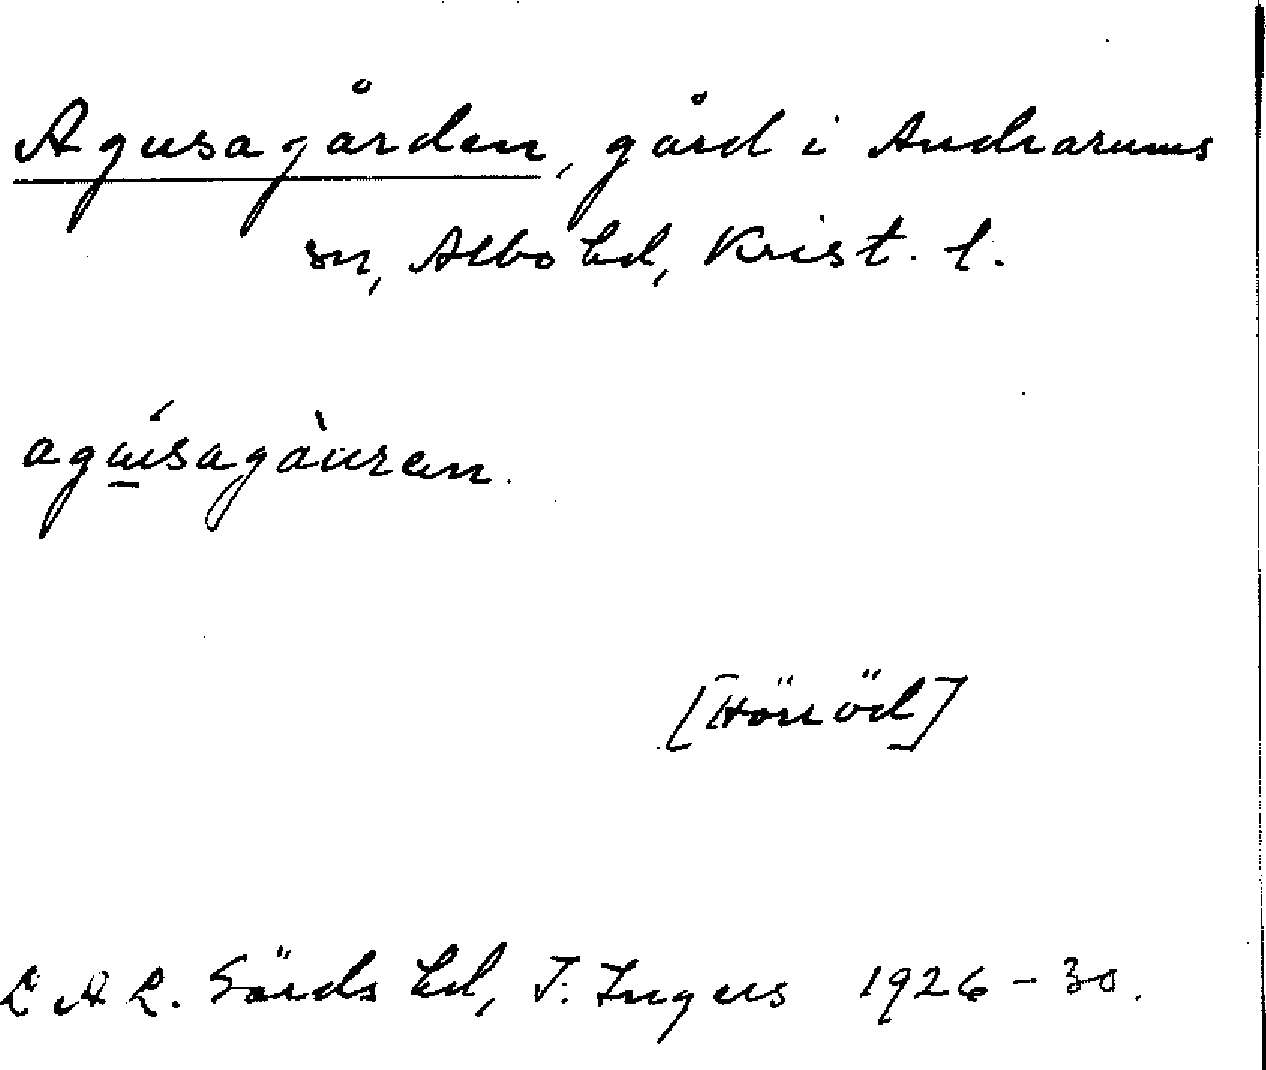 Agusagården, gård i Andrarums
sn, Albo hd, Krist. l.
agu̲ı́sagàuran.
[Hörröd]
LAL. Gärds hd, I. Ingers 1926-30.